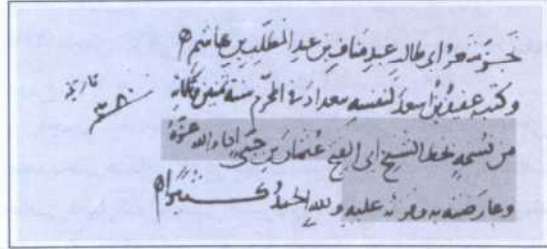 شعر ابى طالب عبد مناف بن عبد المطلب بن هاشم
وكتبه عفيف بن اسعد لنفسه ببغداد فى المحرم سنة ثمنين وثلثمائة
تاريخ
٣٨٠
من نسخة بخط الشيخ ابى الفتح عثمان بن جنى ادام الله عزه
وعارضته به وقراته عليه ولله الحمد كثيرا